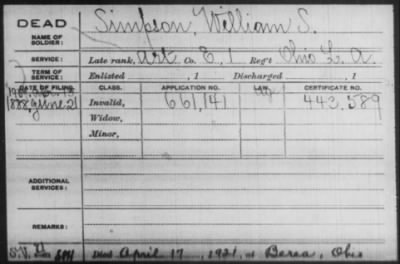 DEAD
NAME OF SOLDIER: Simpson, William S.
SERVICE: Late rank, Art Co. E, 1 Reg't Ohio L. A.
TERM OF SERVICE: Enlisted , 1 Discharged , 1
DATE OF FILING. CLASS. APPLICATION NO. LAW. CERTIFICATE NO.
1888, June 21 Invalid, 661,141 443,589
Widow,
Minor,
ADDITIONAL SERVICES:
REMARKS:
Died April 17, 1921, at Berea, Ohio